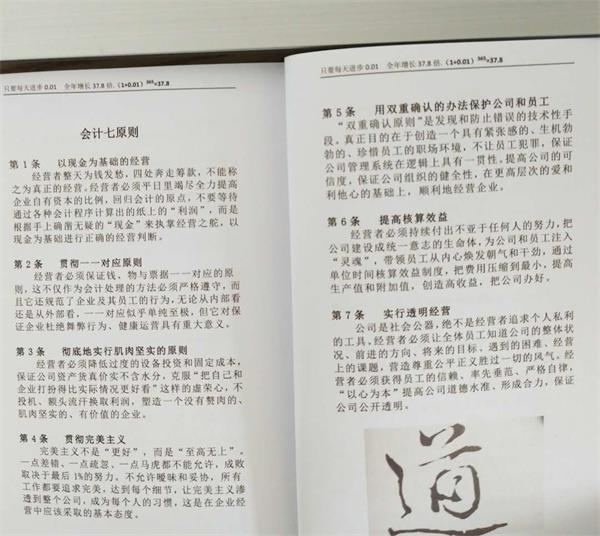 只要每天进步 0.01 全年增长 37.8 倍.（1+0.01）³⁶⁵=37.8
会计七原则
第 1 条 以现金为基础的经营
经营者整天为钱发愁，四处奔走筹款，不能称
之为真正的经营。经营者必须平日里竭尽全力提高
企业自有资本的比例，回归会计的原点，不要等待
通过各种会计程序计算出的纸上的“利润”，而是
根据手上确凿无疑的“现金”来执掌经营之舵，以
现金为基础进行正确的经营判断。
第 2 条 贯彻一一对应原则
经营者必须保证钱、物与票据一一对应的原
则，这不仅作为会计处理的方法必须严格遵守，而
且它还规范了企业及其员工的行为，无论从内部看
还是从外部看，一一对应似乎单纯至极，但它对保
证企业杜绝舞弊行为、健康运营具有重大意义。
第 3 条 彻底地实行肌肉坚实的原则
经营者必须降低过度的设备投资和固定成本，
保证公司资产货真价实不含水分，克服“把自己和
企业打扮得比实际情况更好看”这样的虚荣心，不
投机、额头流汗换取利润，塑造一个没有赘肉的、
肌肉坚实的、有价值的企业。
第 4 条 贯彻完美主义
完美主义不是“更好”，而是“至高无上”。
一点差错、一点疏忽、一点马虎都不能允许，成败
取决于最后 1%的努力。不允许暧昧和妥协，所有
工作都要追求完美，达到每个细节，让完美主义渗
透到整个公司，成为每个人的习惯，这是在企业经
营中应该采取的基本态度。
只要每天进步 0.01 全年增长 37.8 倍.（1+0.01）³⁶⁵=37.8
第 5 条 用双重确认的办法保护公司和员工
“双重确认原则”是发现和防止错误的技术性手
段。真正目的在于创造一个具有紧张感的、生机勃
勃的、珍惜员工的职场环境，不让员工犯罪，保证
公司管理系统在逻辑上具有一贯性。提高公司的可
信度，保证公司组织的健全性，在更高层次的爱和
利他心的基础上，顺利地经营企业。
第 6 条 提高核算效益
经营者必须持续付出不亚于任何人的努力，把
公司建设成统一意志的生命体，为公司和员工注入
“灵魂”，带领员工从内心焕发朝气和干劲，通过
单位时间核算效益制度，把费用压缩到最小，提高
生产值和附加值，创造高收益，把公司办好。
第 7 条 实行透明经营
公司是社会公器，绝不是经营者追求个人私利
的工具。经营者必须让全体员工知道公司的整体状
况、前进的方向、将来的目标、遇到的困难、经营
上的课题，营造尊重公平正义胜过一切的风气。经
营者必须获得员工的信赖、率先垂范、严格自律，
“以心为本”提高公司道德水准、形成合力，保证
公司公开透明。
道